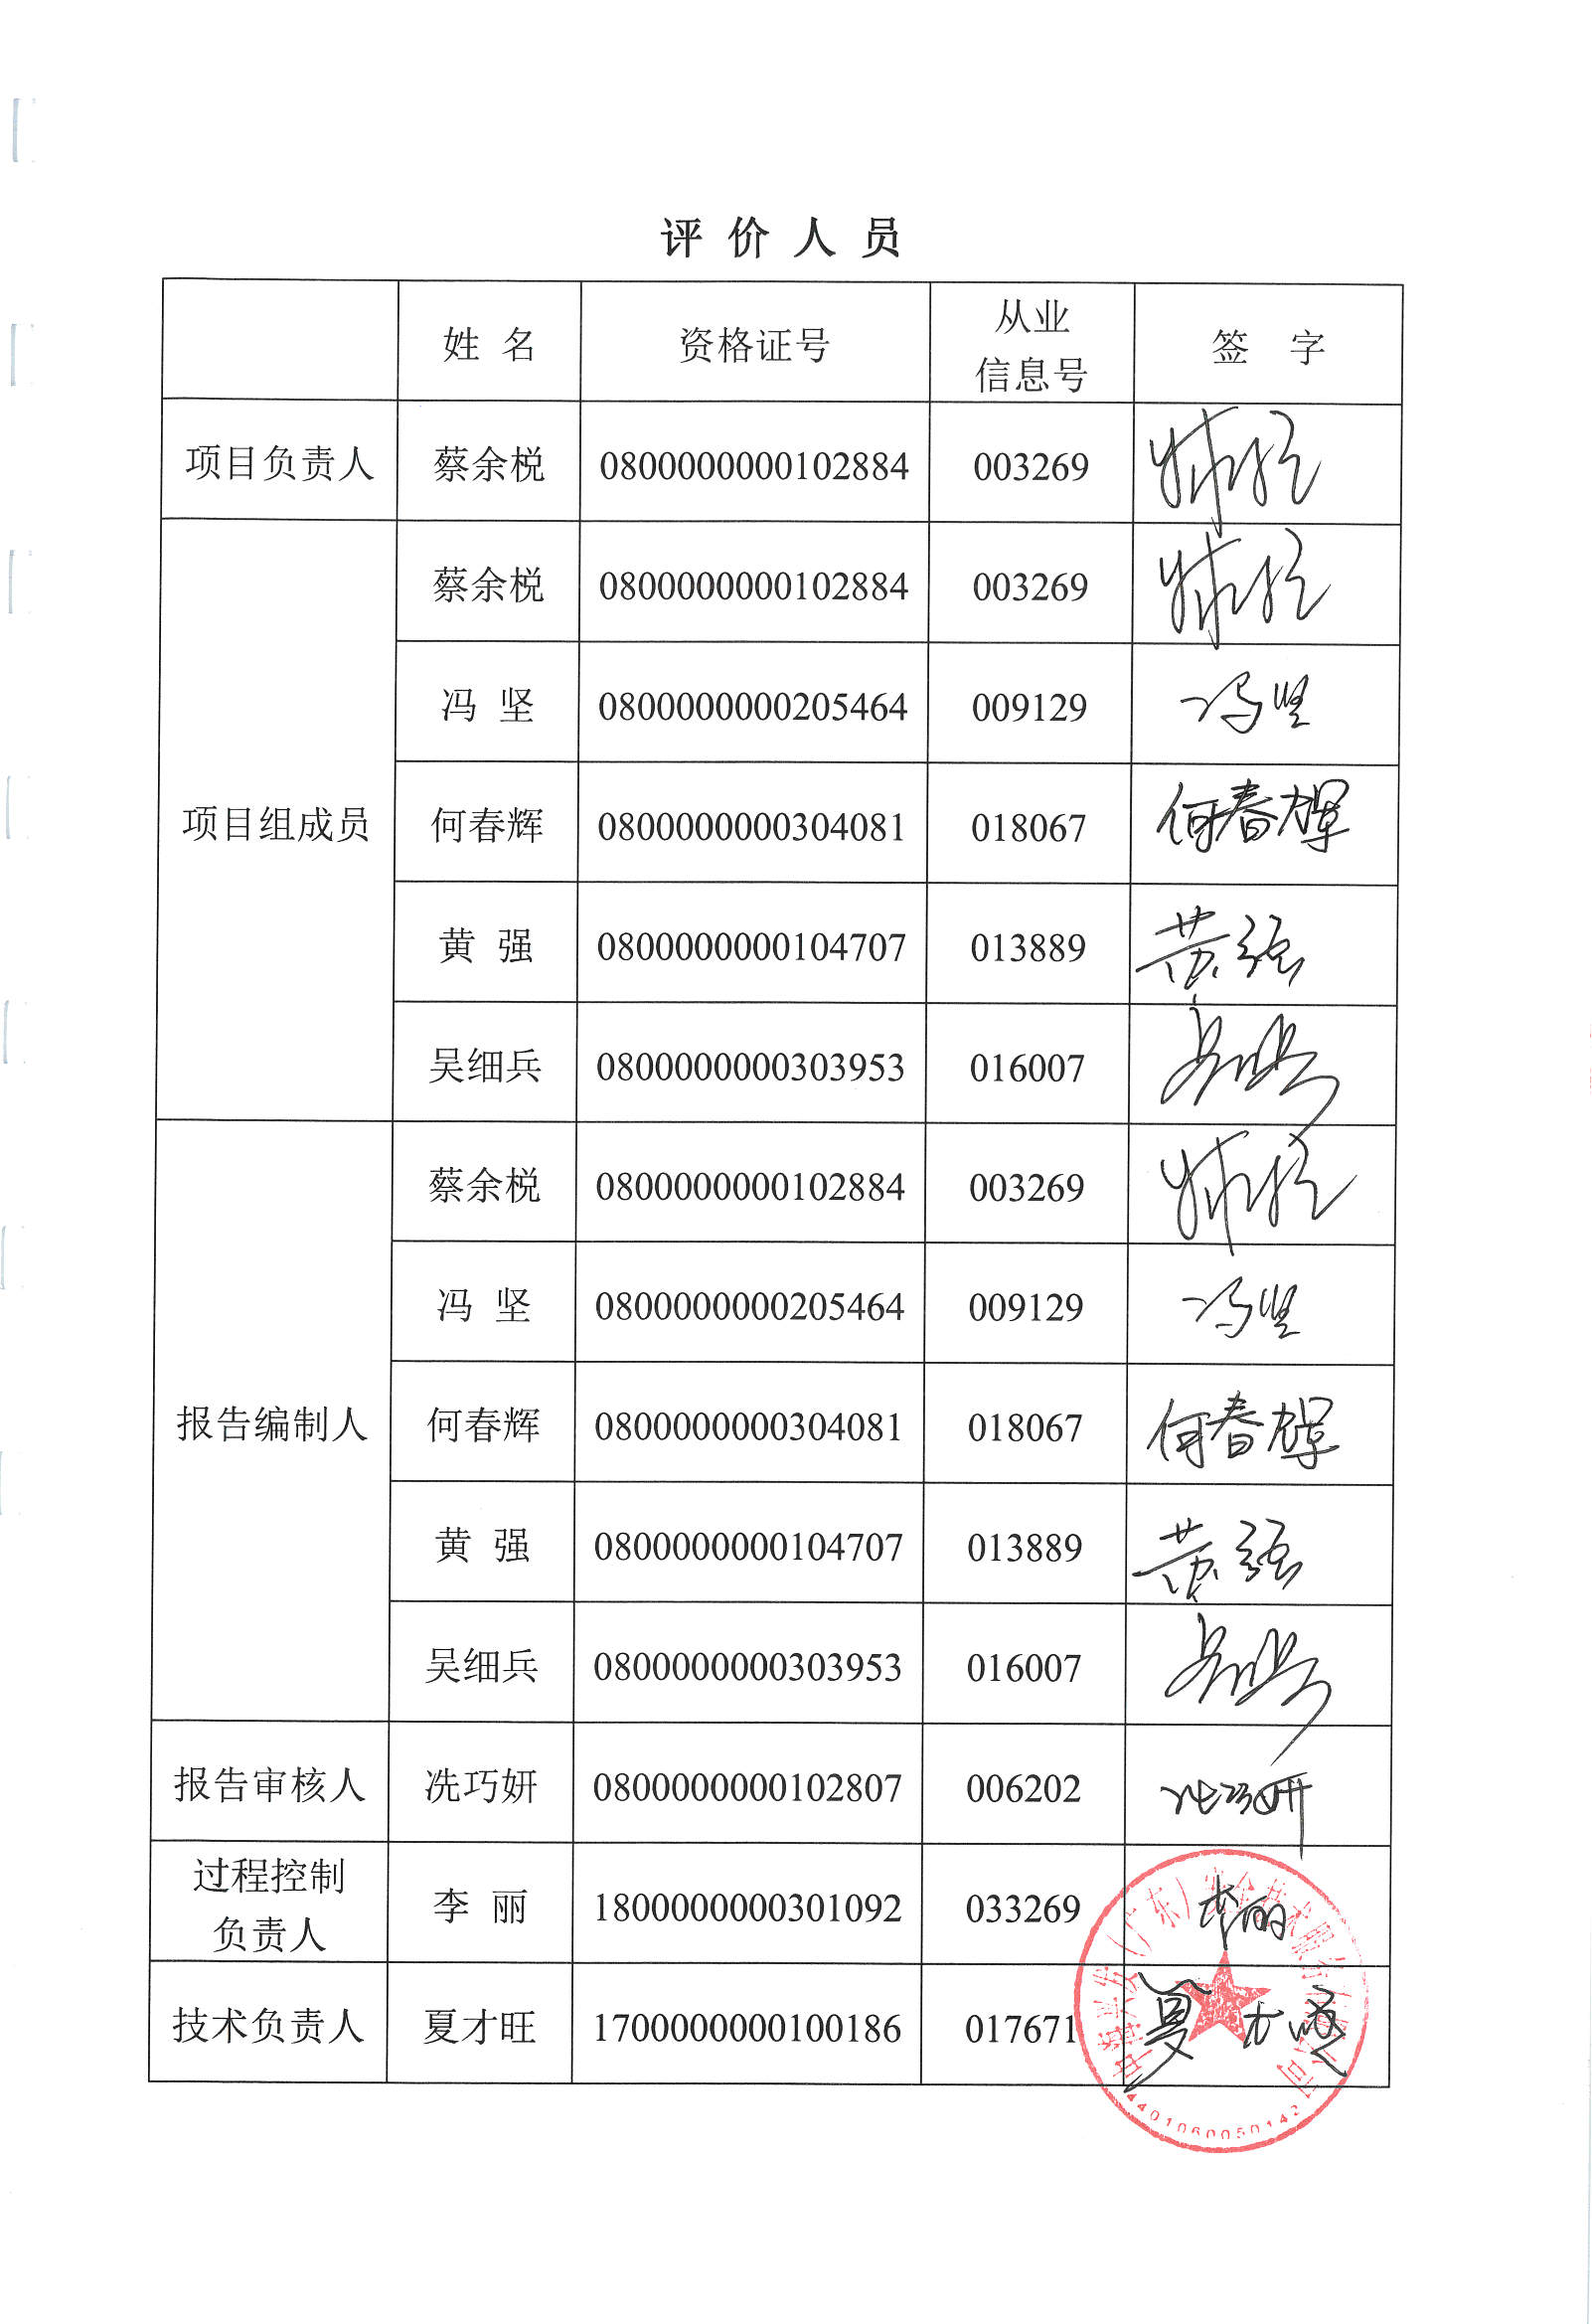 评价人员
姓 名 资格证号 从业信息号 签 字
项目负责人 蔡余棁 0800000000102884 003269
项目组成员 蔡余棁 0800000000102884 003269
冯 坚 0800000000205464 009129 冯坚
何春辉 0800000000304081 018067 何春辉
黄 强 0800000000104707 013889 黄强
吴细兵 0800000000303953 016007
报告编制人 蔡余棁 0800000000102884 003269
冯 坚 0800000000205464 009129 冯坚
何春辉 0800000000304081 018067 何春辉
黄 强 0800000000104707 013889 黄强
吴细兵 0800000000303953 016007
报告审核人 冼巧妍 0800000000102807 006202 冼巧妍
过程控制负责人 李 丽 1800000000301092 033269 李丽
技术负责人 夏才旺 1700000000100186 017671 夏才旺